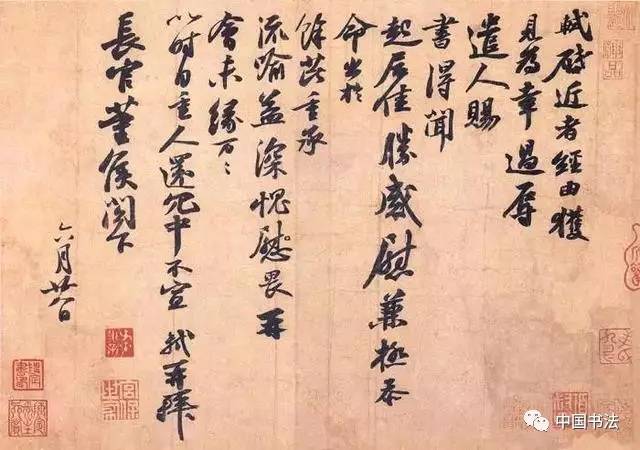 軾啓近者經由獲
見為幸過辱
遣人賜
書得聞
起居佳勝感慰兼極忝
命出於
餘芘重承
流喻益深愧慰畏再
會未緣万〻
以時自重人還冗中不宣 軾再拜
長官董侯閣下
六月廿八日
中国书法